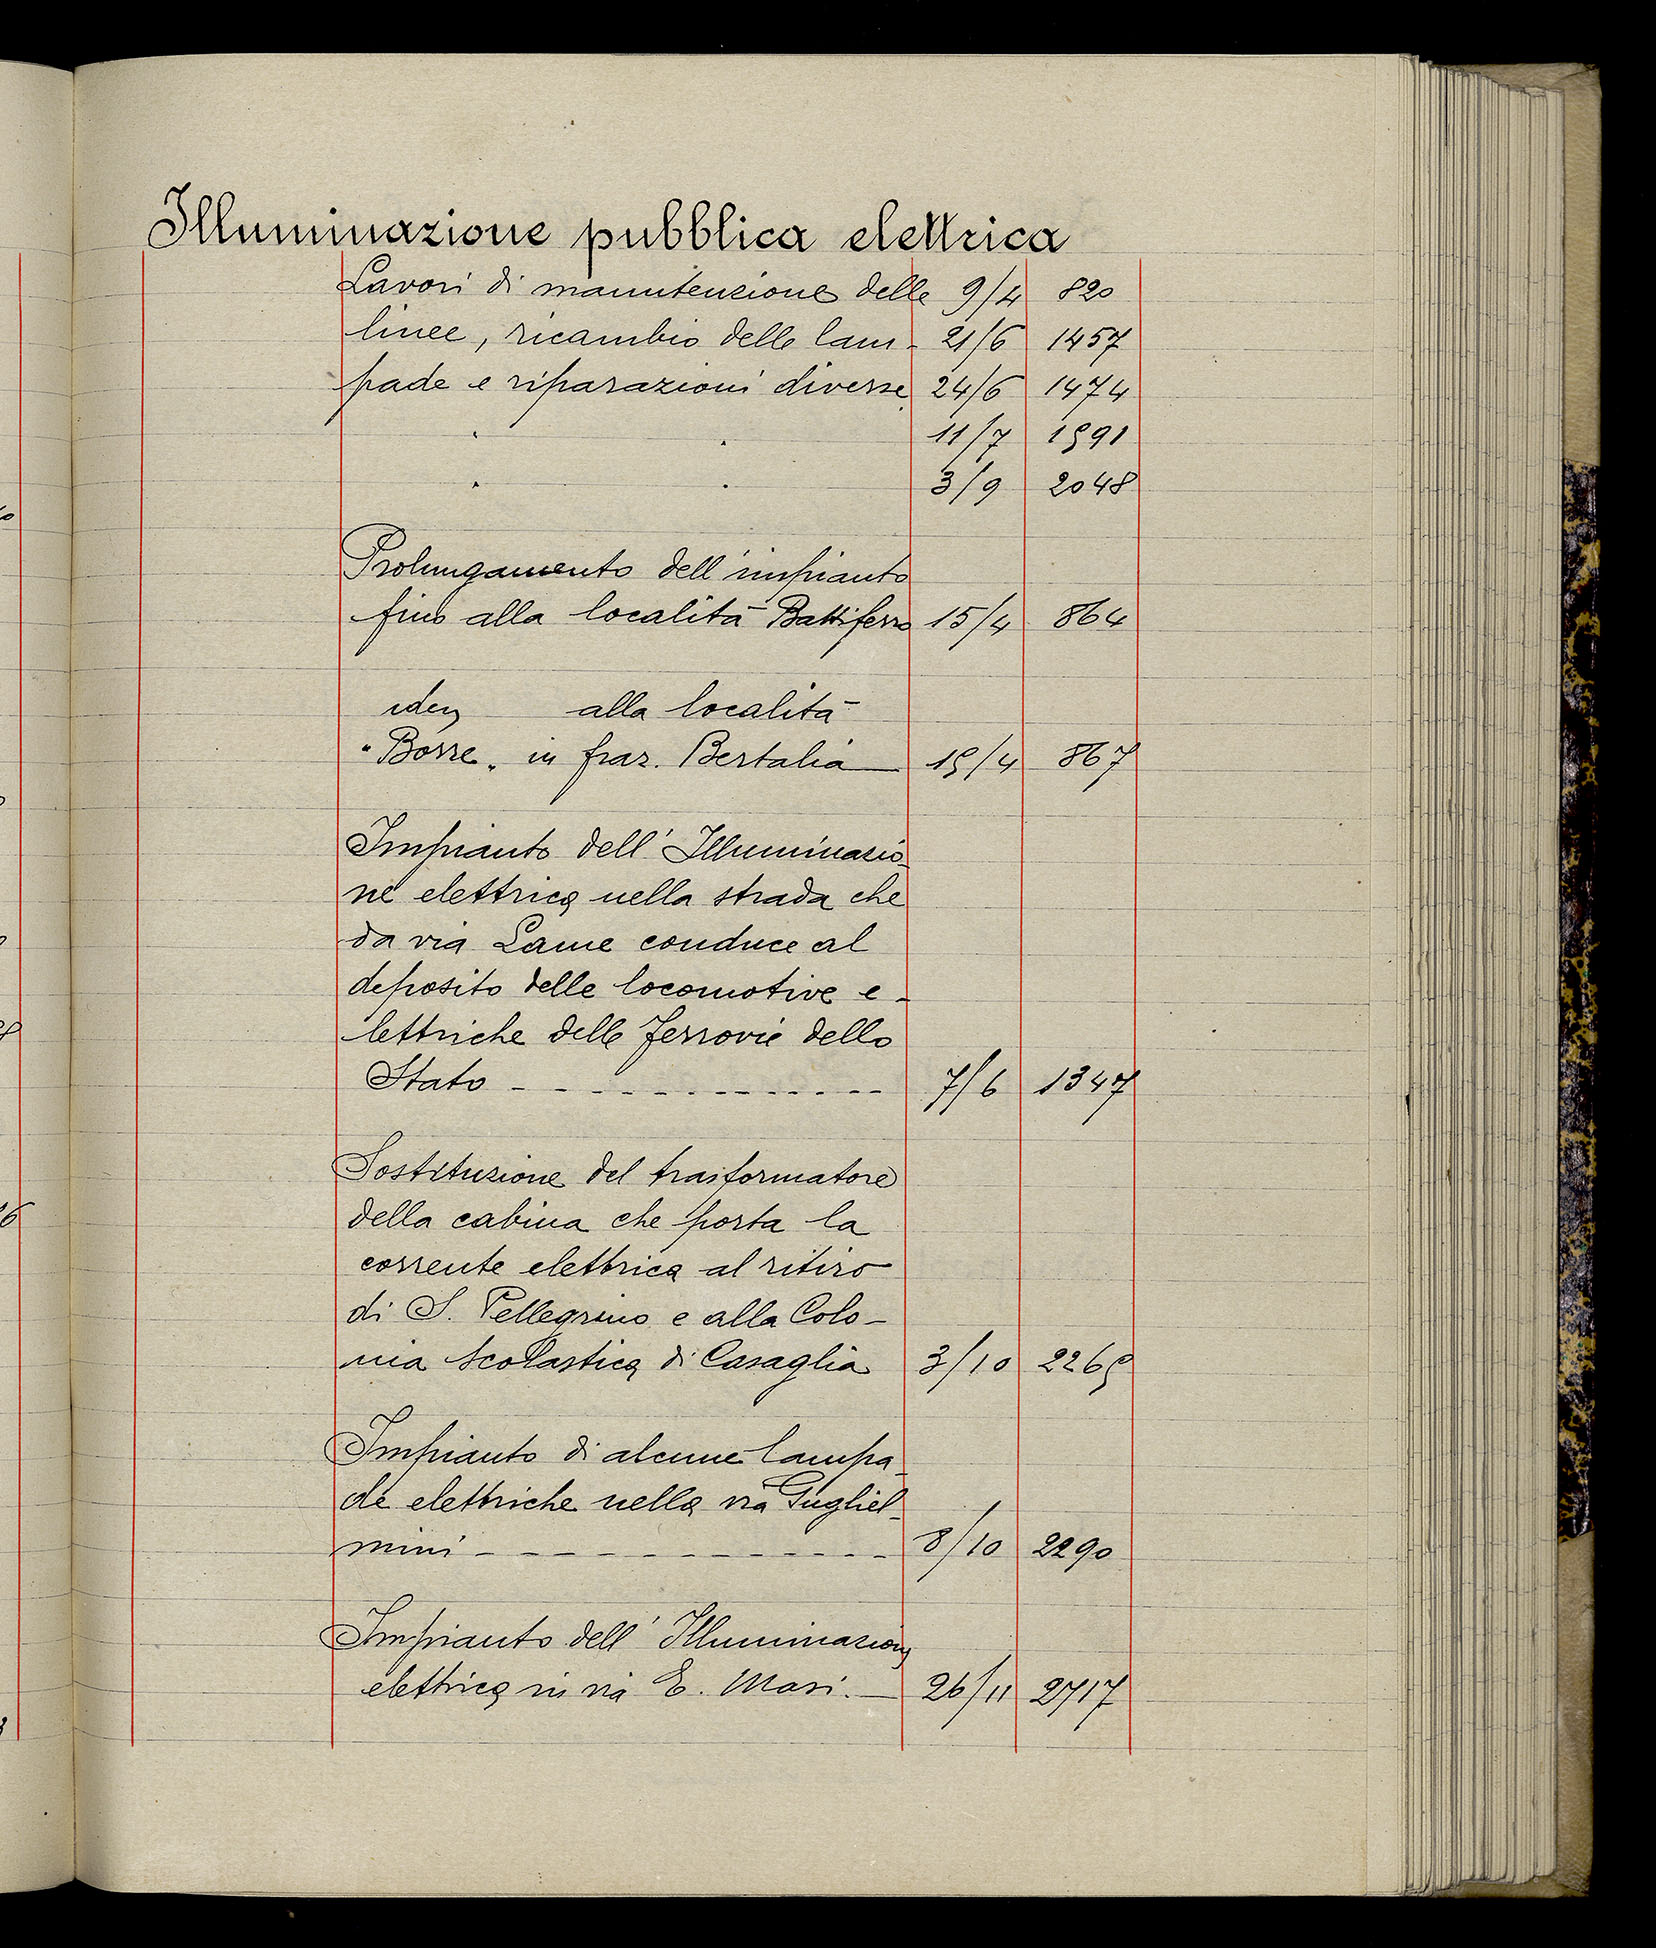 Illuminazione pubblica elettrica
Lavori di manutenzione delle 9/4 820
linee, ricambio delle lam- 21/6 1457
pade e riparazioni diverse 24/6 1474
" " 11/7 1591
" " 3/9 2048
Prolungamento dell'impianto
fino alla località Battiferro 15/4 864
idem alla località
"Borre" in fraz. Bertalia 15/4 867
Impianto dell'Illuminazio-
ne elettrica nella strada che
da via Lame conduce al
deposito delle locomotive e-
lettriche delle Ferrovie dello
Stato - - - - - - - - - - - - 7/6 1347
Sostituzione del trasformatore
della cabina che porta la
corrente elettrica al ritiro
di S. Pellegrino e alla Colo-
nia Scolastica di Casaglia 3/10 2265
Impianto di alcune lampa-
de elettriche nella via Gugliel-
mini - - - - - - - - - - - - 8/10 2290
Impianto dell'Illuminazione
elettrica in via E. Masi. — 26/11 2717